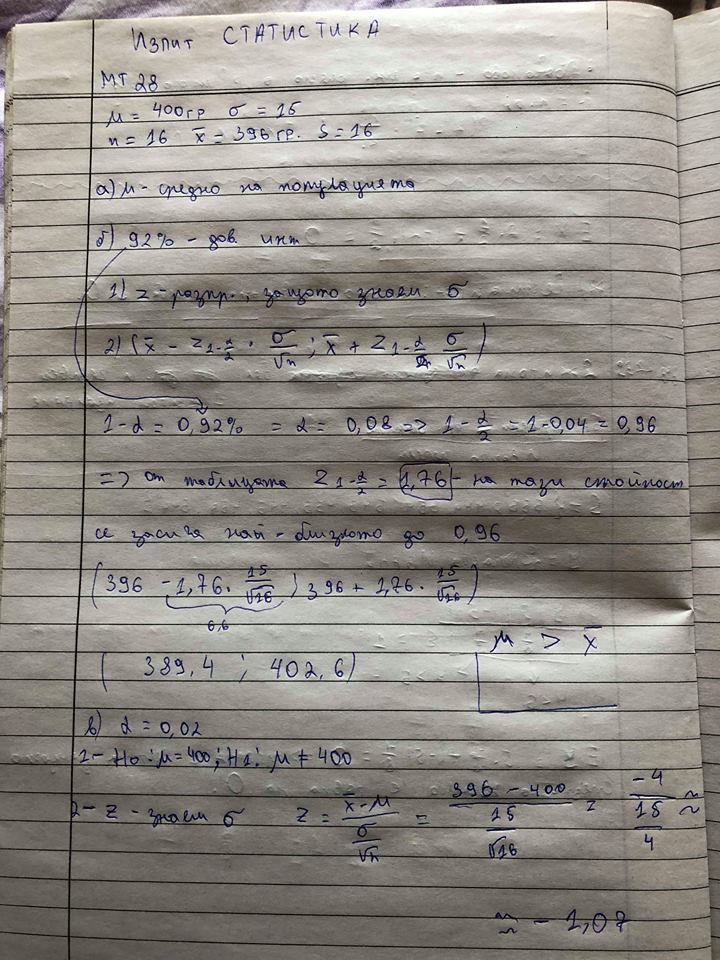 Изпит СТАТИСТИКА
МТ 28
μ = 400гр σ = 15
n = 16 x̄ = 396гр. S = 16
а) μ - средно на популацията
б) 92% - дов. инт
1) z - разпр., защото знаем σ
2) (x̄ - z1-α/2 · σ/√n ; x̄ + z1-α/2 σ/√n)
1-α = 0,92% = α = 0,08 => 1-α/2 = 1-0,04 = 0,96
=> от таблицата z1-α/2 = 1,76 - на тази стойност
се засича най-близкото до 0,96
(396 - 1,76 · 15/√16 ; 396 + 1,76 · 15/√16)
6,6
μ > x̄
( 389,4 ; 402,6)
в) α = 0,02
1- H0: μ = 400; H1: μ ≠ 400
2- z - знаем σ z = x̄-μ/σ/√n = 396 - 400/15/√16 = -4/15/4 ≈
≈ - 1,07